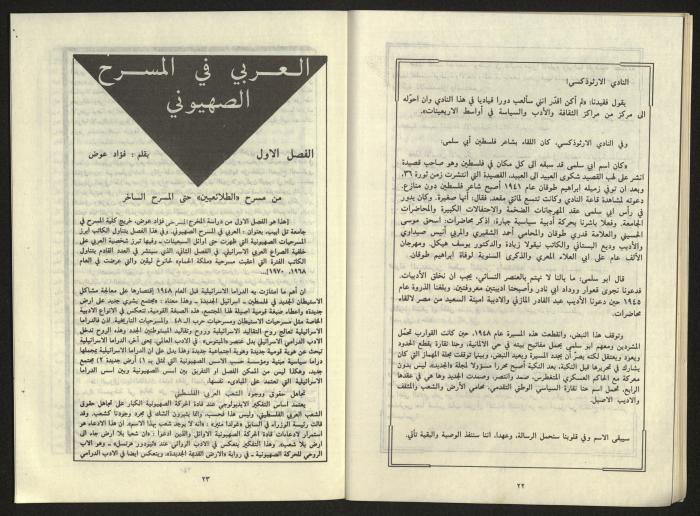 النادي الارثوذكسي!
يقول فقيدنا: «لم أكن اقدّر انني سألعب دورا قياديا في هذا النادي وان احوّله
الى مركز من مراكز الثقافة والأدب والسياسة في أواسط الاربعينات».
وفي النادي الارثوذكسي، كان اللقاء بشاعر فلسطين أبي سلمى:
«كان اسم ابي سلمى قد سبقه الى كل مكان في فلسطين وهو صاحب قصيدة
انشر على لهب القصيد شكوى العبيد الى العبيد، القصيدة التي انتشرت زمن ثورة ٣٦،
وبعد ان توفي زميله ابراهيم طوقان عام ١٩٤١ أصبح شاعر فلسطين دون منازع.
دعوته لمشاهدة قاعة النادي وكانت تتسع لمائتي مقعد، فقال: أنها صغيرة. وكان يدور
في رأس أبي سلمى عقد المهرجانات الضخمة والاحتفالات الكبيرة والمحاضرات
الجامعة. وفعلا باشرنا بحركة أدبية سياسية جبارة، أذكر محاضرات: اسحق موسى
الحسيني والعلامة قدري طوقان والمحامي أحمد الشقيري والمربي أنيس صيداوي
والأديب وديع البستاني والكاتب نيقولا زيادة والدكتور يوسف هيكل، ومهرجان
الألف عام على أبي العلاء المعري والذكرى السنوية لوفاة ابراهيم طوقان.
قال ابو سلمى: ما بالنا لا نهتم بالعنصر النسائي، يجب ان نخلق الأديبات.
فدعونا نجوى قعوار ووداد ابي نادر وأصبحتا أديبتين معروفتين. وبلغنا الذروة عام
١٩٤٥ حين دعونا الأديب عبد القادر المازني والاديبة امينة السعيد من مصر لالقاء
محاضرات.
وتوقف هذا النبض، وانقطعت هذه المسيرة عام ١٩٤٨، حين كانت القوارب تحمل
المشردين ومعهم ابو سلمى يحمل مفاتيح بيته في حي الالمانية، وحنا نقارة يقطع الحدود
ويعود ويعتقل لكنه يصرّ أن يجدد المسيرة ويعيد النبض، وبينما توقفت مجلة المهماز التي كان
يشارك في تحريرها قبل النكبة، بعد النكبة أصبح محررا مسؤولا لمجلة «الجديد»، ليس بدون
معركة مع الحاكم العسكري المتغطرس، صمد وانتصر، وصمدت الجديد وها هي في عقدها
الرابع، تحمل اسم حنا نقارة السياسي الوطني التقدمي، محامي الأرض والشعب والمثقف
والأديب الاصيل.
سيبقى الاسم وفي قلوبنا سنحمل الرسالة، وعهدا، اننا سننفذ الوصية والبقية تأتي.
٢٢
العربي في المسرح
الصهيوني
الفصل الاول
بقلم : فؤاد عوض
من مسرح «الطلائعيين» حتى المسرح الساخر
[هذا هو الفصل الاول من دراسة المخرج المسرحي فؤاد عوض، خريج كلية المسرح في
جامعة تل ابيب، بعنوان : العربي في المسرح الصهيوني. وفي هذا الفصل يتناول الكاتب ابرز
المسرحيات الصهيونية التي ظهرت حتى أوائل السبعينات ـ وفيها تبرز شخصية العربي على
خلفية الصراع العربي الاسرائيلي. في الفصل الثاني، الذي سينشر في العدد القادم يتناول
الكاتب الفترة التي أعقبت مسرحية «ملكة الحمام» لحانوخ ليفين والتي عرضت في العام
١٩٦٨، ١٩٧٠]...
ان أهم ما امتازت به الدراما الاسرائيلية قبل العام ١٩٤٨ إقتصارها على معالجة مشاكل
الاستيطان الجديد في فلسطين ـ اسرائيل الجديدة ـ وهذا معناه : «مجتمع بشري جديد على ارض
جديدة» واعطاء صبغة قومية اصيلة لهذا المجتمع، هذه الصفة القومية، تنعكس في الانواع الادبية
الخاصة مثل مسرحيات الاستيطان ومسرحيات حرب الـ ٤٨ والمسرحيات التاريخية. اذن فالدراما
الاسرائيلية تعالج روح التقاليد الاسرائيلية وروح وتقاليد المستوطنين الجدد وهذه الروح تدخل
الادب الدرامي الاسرائيلي بدل عنصر «الميتوس» في الادب العالمي. بمعنى آخر، الدراما الاسرائيلية
تبحث عن هوية قومية جديدة وهوية اجتماعية جديدة وهذا يدل على ان الدراما الاسرائيلية بمجملها
دراما سياسية مبنية ومؤسسة حسب الاسس الصهيونية التي تمثل بـ ١) أرض جديدة ٢) مجتمع
جديد، وهكذا ليس من الممكن الفصل او التفريق بين اسس الصهيونية وبين اسس الدراما
الاسرائيلية التي تعتمد على المبادىء نفسها.
تجاهل حقوق ووجود الشعب العربي الفلسطيني
يعتمد أساس التفكير الايديولوجي عند قادة الحركة الصهيونية الكبار على تجاهل حقوق
الشعب العربي الفلسطيني، وليس هذا فحسب، وانما يثيرون الشك في مجرد وجودنا كشعب. وقد
قالت رئيسة الوزراء في السابق «غولدا مئير» : «انه لا يوجد شعب بهذا الاسم». ان هذا الادعاء هو
استمرار لادعاءات قادة الحركة الصهيونية الاوائل والذين ادعوا : «ان شعبا بلا أرض جاء الى
ارض بلا شعب». وهذا التفكير ينعكس في الادب الروائي عند «تيودور هرتسل» ـ وهو الاب
الروحي للحركة الصهيونية ـ في رواية «الارض القديمة الجديدة»، وينعكس ايضا في الادب الدرامي
٢٣